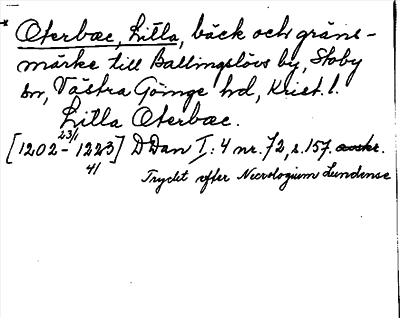 * Oterbæc, Litla, bäck och gräns-
märke till Ballingslövs by, Stoby
sn, Västra Göinge hd, Krist. l.
Litla Oterbæc.
23/1
[1202 - 1223] D Dan I:4 nr. 72, s. 157. avskr.
4/
Tryckt efter Necrologium Lundense